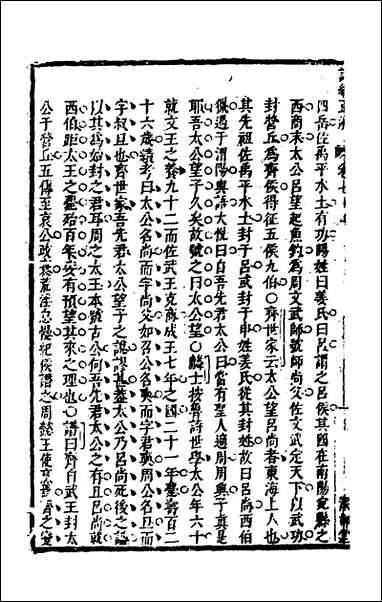 四岳佐禹平水土有功賜姓曰姜氏曰呂謂之呂侯其國在南陽宛縣之
西商末太公呂望起魚釣為周文武師號師尚父佐文武定天下以武功
封營丘為齊侯得征五侯九伯○齊世家云太公望呂尚者東海上人也
其先祖佐禹平水土封于呂或封于申姓姜氏從其封姓故曰呂尚西伯
獵遇于渭陽與語大悅曰自吾先君太公曰當有聖人適周周與子真是
耶吾太公望子久矣故號之曰太公望○麟士按魯詩世學太公年六十
就文王之養九十二而佐武王克商成王七年之國二十一年薨壽百二
十六歲續考曰太公名尚而字尚父如召公名奭而字君奭周公名旦而
字叔旦也齊世家吾先君太公望子之說謬甚蓋太公乃呂尚死後之諡
以其為始封之君耳周之太王本號古公何吾先君太公之有且呂尚就
西伯距太王之薨殆百年安有預望其來之理也○譜曰齊自武王封太
公于營丘五傳至哀公政衰荒淫怠慢紀侯譖之周懿王使烹焉齊之變